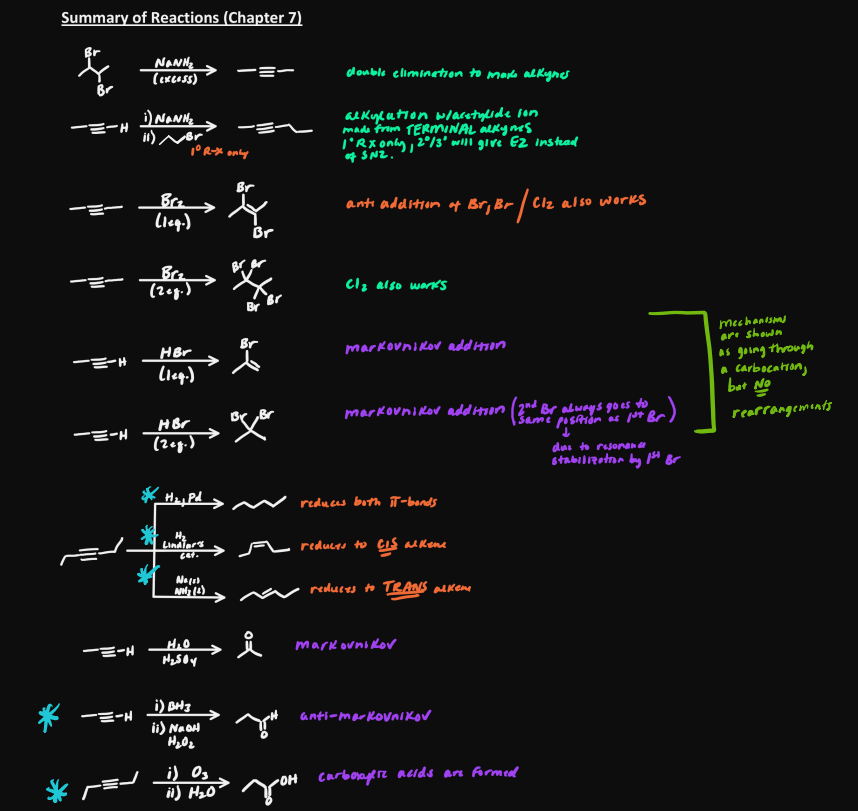 Summary of Reactions (Chapter 7)
Br
Br
NaNH2
(excess)
double elimination to make alkynes
H
i) NaNH2
ii) Br
1° R-X only
alkylation w/acetylide ion
made from TERMINAL alkynes
1° RX only, 2°/3° will give E2 instead
of SN2.
Br2
(1eq.)
Br
Br
anti addition of Br, Br / Cl2 also works
Br2
(2eq.)
Br Br
Br Br
Cl2 also works
H
HBr
(1eq.)
Br
markovnikov addition
H
HBr
(2eq.)
Br Br
markovnikov addition (2nd Br always goes to
same position as 1st Br)
↓
due to resonance
stabilization by 1st Br
mechanisms
are shown
as going through
a carbocation,
but NO
rearrangements
H2, Pd
reduces both π-bonds
H2
Lindlar's
cat.
reduces to CIS alkene
Na(s)
NH3(l)
reduces to TRANS alkene
H
H2O
H2SO4
O
markovnikov
H
i) BH3
ii) NaOH
H2O2
H
O
anti-markovnikov
i) O3
ii) H2O
OH
O
carboxylic acids are formed